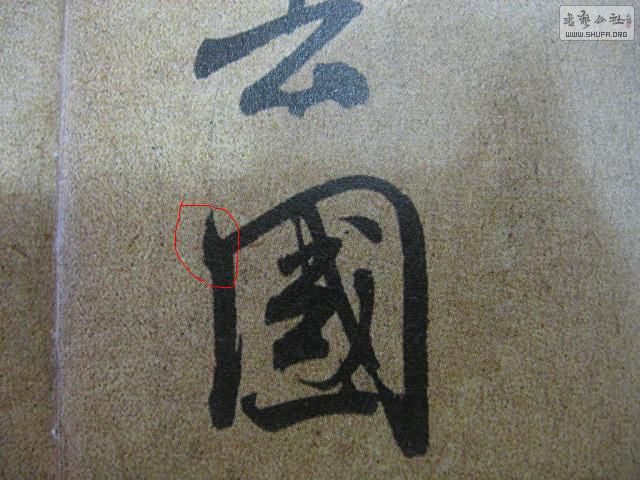 國
書藝公社
WWW.SHUFA.ORG